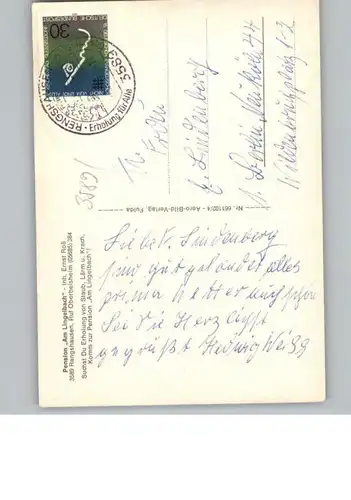 Pension „Am Lingelbach" - Inh. Ernst Roß
3589 Rengshausen, Ruf Oberbeisheim (05685) 384
Suchst Du Erholung von Staub, Lärm u. Krach,
Komm zur Pension „Am Lingelbach"!
Nr. 661102/4 - Aero-Bild-Verlag, Fulda
DEUTSCHE BUNDESPOST
30
3589
RENGSHAUSEN
Erholung für Alle
3589/
E Lindenberg
1. Berlin 44
Liebe F. Lindenberg
sind gut gelandet alles
prima Wetter auch schön
Sei die Herzlichst
gegrüßt Hedwig Weiß